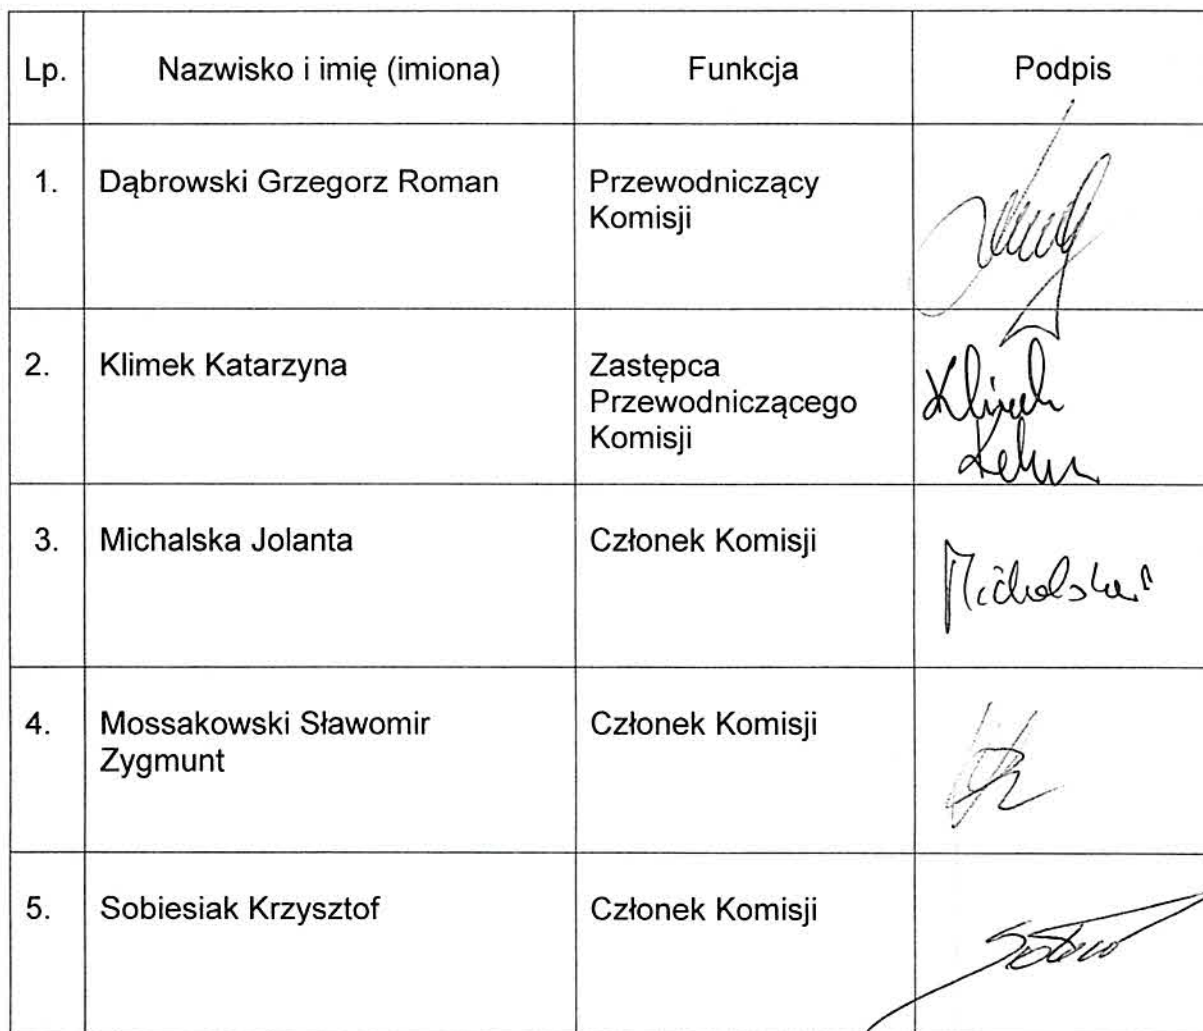 Lp. Nazwisko i imię (imiona) Funkcja Podpis
1. Dąbrowski Grzegorz Roman Przewodniczący
Komisji
2. Klimek Katarzyna Zastępca
Przewodniczącego
Komisji
Klimek
3. Michalska Jolanta Członek Komisji
Michalska
4. Mossakowski Sławomir Członek Komisji
Zygmunt
5. Sobiesiak Krzysztof Członek Komisji